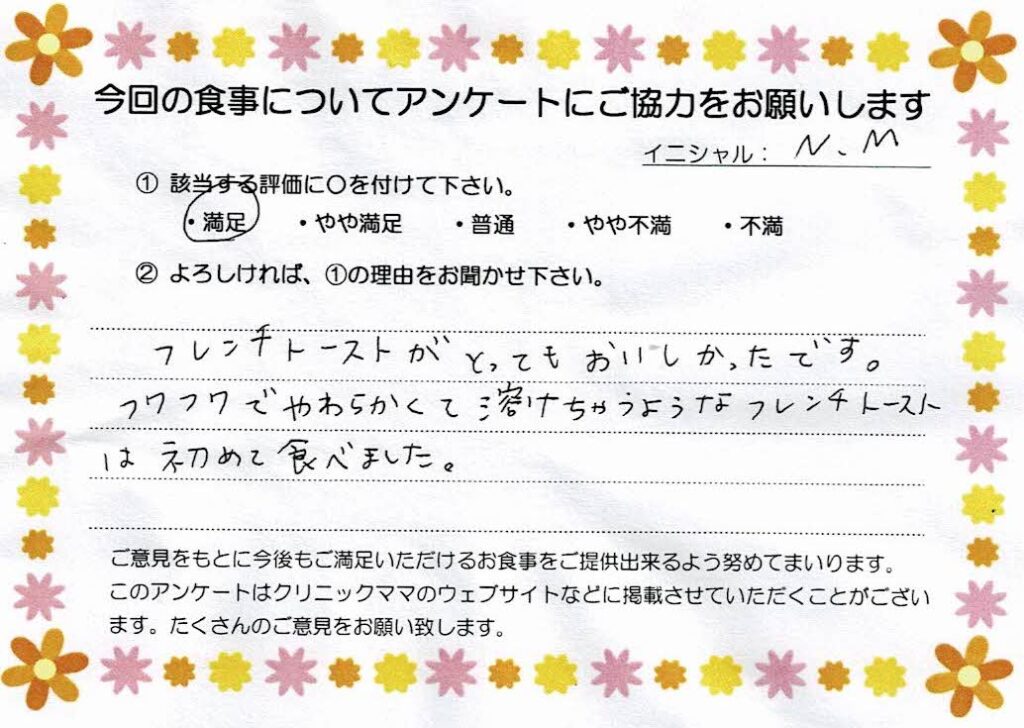 今回の食事についてアンケートにご協力をお願いします
イニシャル： N.M
① 該当する評価に〇を付けて下さい。
・満足 ・やや満足 ・普通 ・やや不満 ・不満
② よろしければ、①の理由をお聞かせ下さい。
フレンチトーストがとってもおいしかったです。
フワフワでやわらかくて溶けちゃうようなフレンチトースト
は初めて食べました。
ご意見をもとに今後もご満足いただけるお食事をご提供出来るよう努めてまいります。
このアンケートはクリニックママのウェブサイトなどに掲載させていただくことがござい
ます。たくさんのご意見をお願い致します。